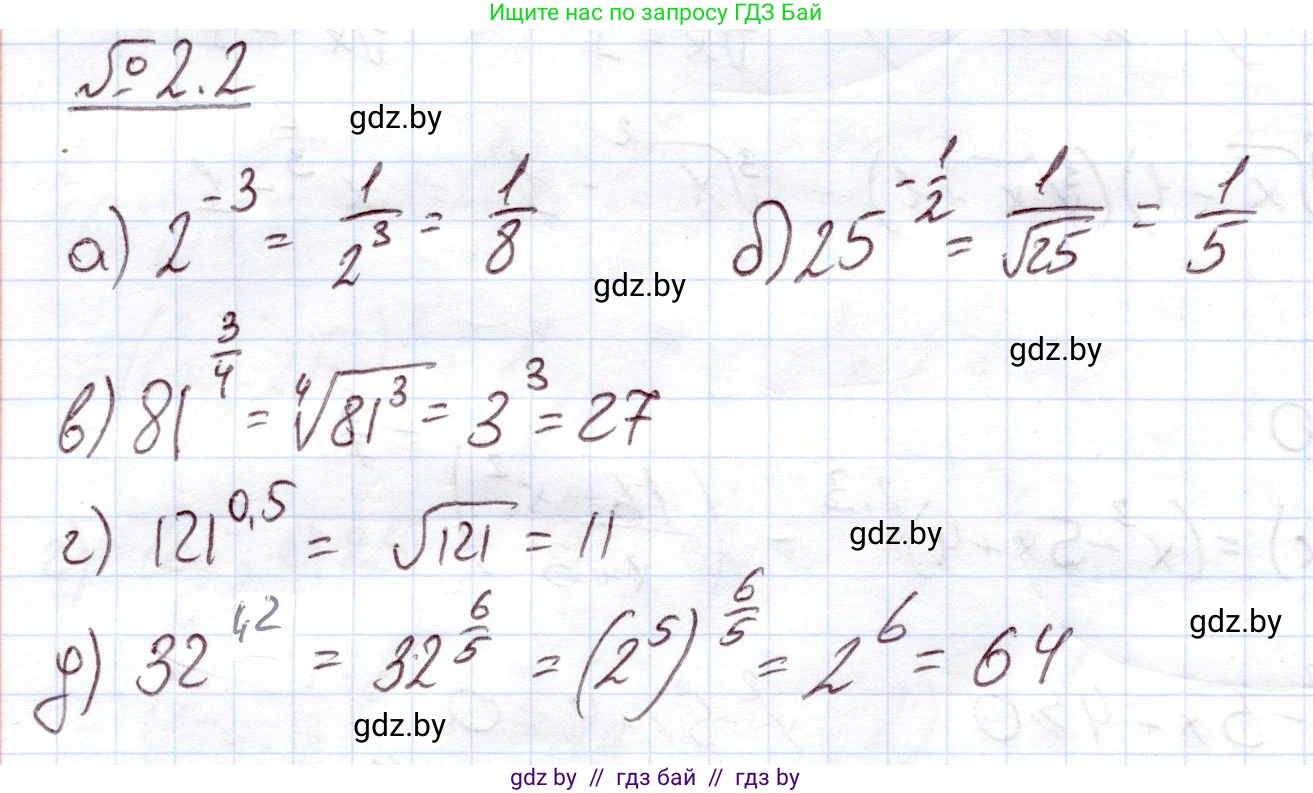 Ищите нас по запросу ГДЗ Бай
№ 2.2
gdz.by
а) 2^{-3} = \frac{1}{2^3} = \frac{1}{8}
б) 25^{-\frac{1}{2}} = \frac{1}{\sqrt{25}} = \frac{1}{5}
gdz.by
gdz.by
в) 81^{\frac{3}{4}} = \sqrt[4]{81^3} = 3^3 = 27
г) 121^{0,5} = \sqrt{121} = 11
gdz.by
д) 32^{1,2} = 32^{\frac{6}{5}} = (2^5)^{\frac{6}{5}} = 2^6 = 64
gdz.by
gdz.by
gdz by // гдз бай // гдз by